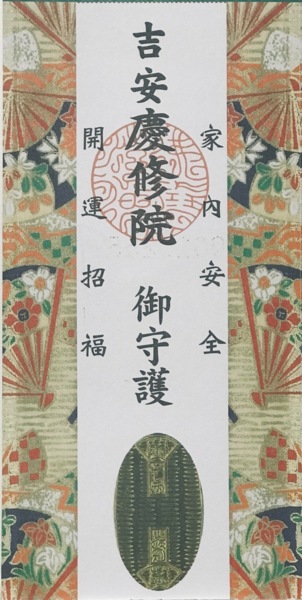 家内安全
吉安慶修院 御守護
開運招福